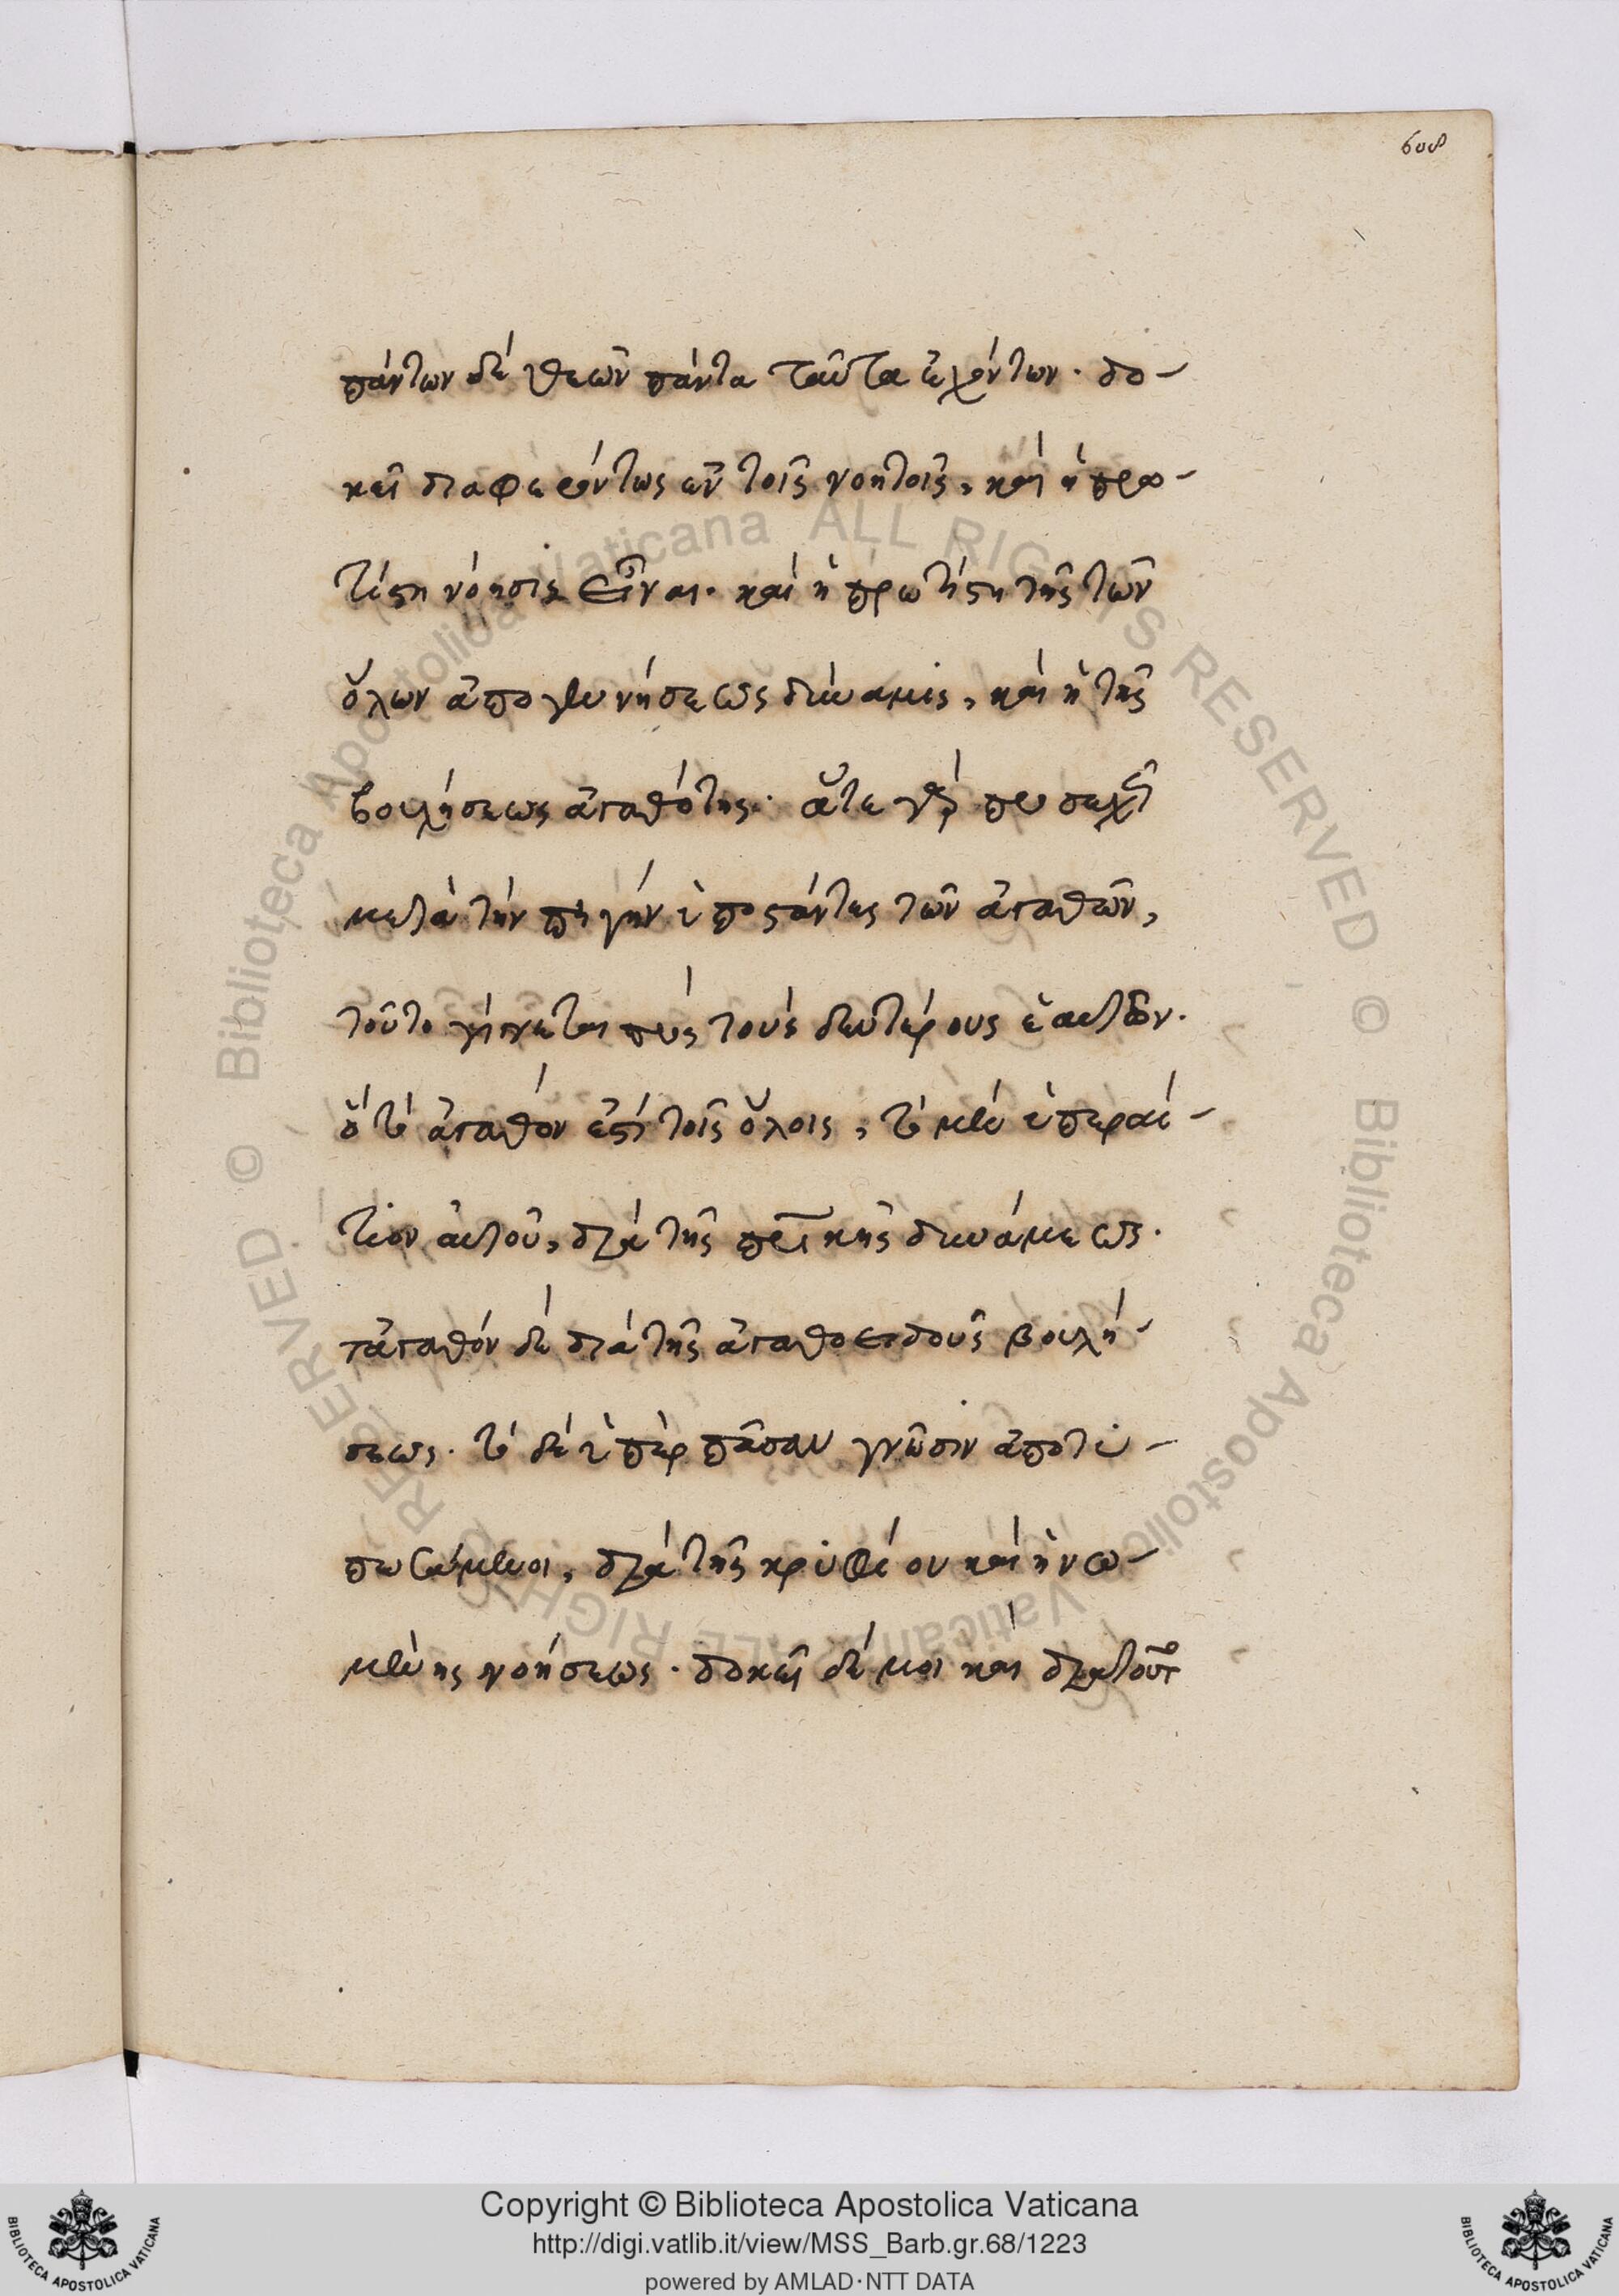 608
πάντων δὲ θεῶν πάντα ταῦτα ἐχόντων· δο-
κεῖ διαφερόντως ἐν τοῖς νοητοῖς, καὶ ἡ πρω-
τίστη νόησις εἶναι· καὶ ἡ πρωτίστη τῆς τῶν
ὅλων ἀπογεννήσεως δύναμις, καὶ ἡ τῆς
βουλήσεως ἀγαθότης· ἅτε γὰρ προσεχῶς
μετὰ τὴν πηγὴν ὑποστάντες τῶν ἀγαθῶν,
τοῦτο γίγνεται πρὸς τοὺς δευτέρους ἑαυτῶν·
ὃ τὸ ἀγαθὸν ἐστὶ τοῖς ὅλοις, τὸ μὲν ὑπεραί-
τιον αὐτοῦ, διὰ τῆς πατρικῆς δυνάμεως·
τἀγαθὸν δὲ διὰ τῆς ἀγαθοειδοῦς βουλή-
σεως· τὸ δὲ ὑπὲρ πᾶσαν γνῶσιν ἀποτυ-
πωσάμενοι, διὰ τῆς κρυφίου καὶ ἡνω-
μένης νοήσεως· δοκεῖ δέ μοι καὶ διὰ τοῦτο
Copyright © Biblioteca Apostolica Vaticana
http://digi.vatlib.it/view/MSS_Barb.gr.68/1223
powered by AMLAD·NTT DATA
BIBLIOTECA APOSTOLICA VATICANA
BIBLIOTECA APOSTOLICA VATICANA
© Biblioteca Apostolica Vaticana ALL RIGHTS RESERVED © Biblioteca Apostolica Vaticana ALL RIGHTS RESERVED